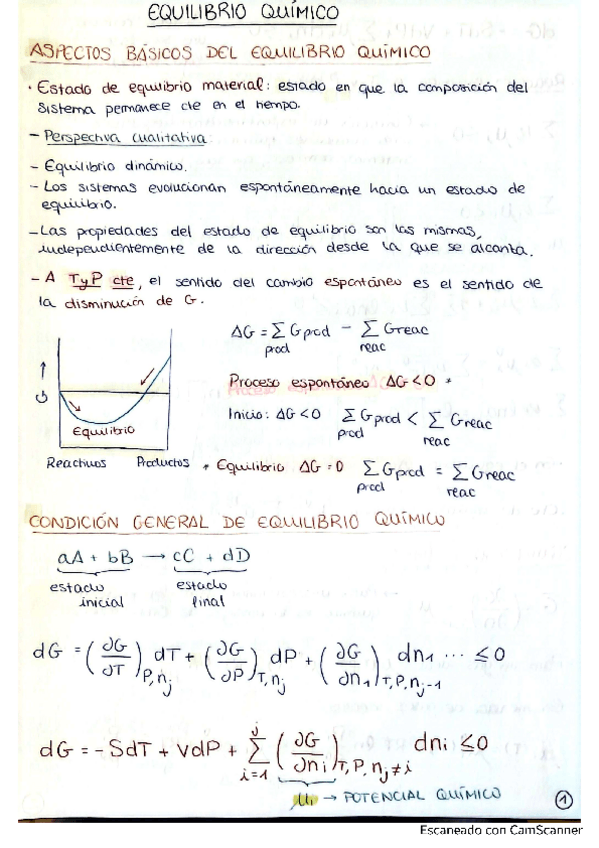 EQUILIBRIO QUÍMICO
ASPECTOS BÁSICOS DEL EQUILIBRIO QUÍMICO
· Estado de equilibrio material: estado en que la composición del
sistema permanece cte en el tiempo.
- Perspectiva cualitativa:
- Equilibrio dinámico.
- Los sistemas evolucionan espontáneamente hacia un estado de
equilibrio.
- Las propiedades del estado de equilibrio son las mismas,
independientemente de la dirección desde la que se alcanza.
- A T y P cte, el sentido del cambio espontáneo es el sentido de
la disminución de G.
ΔG = Σ Gprod - Σ Greac
prod reac
Proceso espontáneo ΔG < 0 *
Inicio: ΔG < 0 Σ Gprod < Σ Greac
prod reac
G →
Equilibrio
Reactivos Productos
* Equilibrio ΔG = 0 Σ Gprod = Σ Greac
prod reac
CONDICIÓN GENERAL DE EQUILIBRIO QUÍMICO
aA + bB → cC + dD
estado estado
inicial final
dG = (∂G/∂T)P,nj dT + (∂G/∂P)T,nj dP + (∂G/∂n1)T,P,nj-1 dn1 ... ≤ 0
dG = - SdT + VdP + Σ j i=1 (∂G/∂ni)T,P,nj≠i dni ≤ 0
μi → POTENCIAL QUÍMICO
1
Escaneado con CamScanner